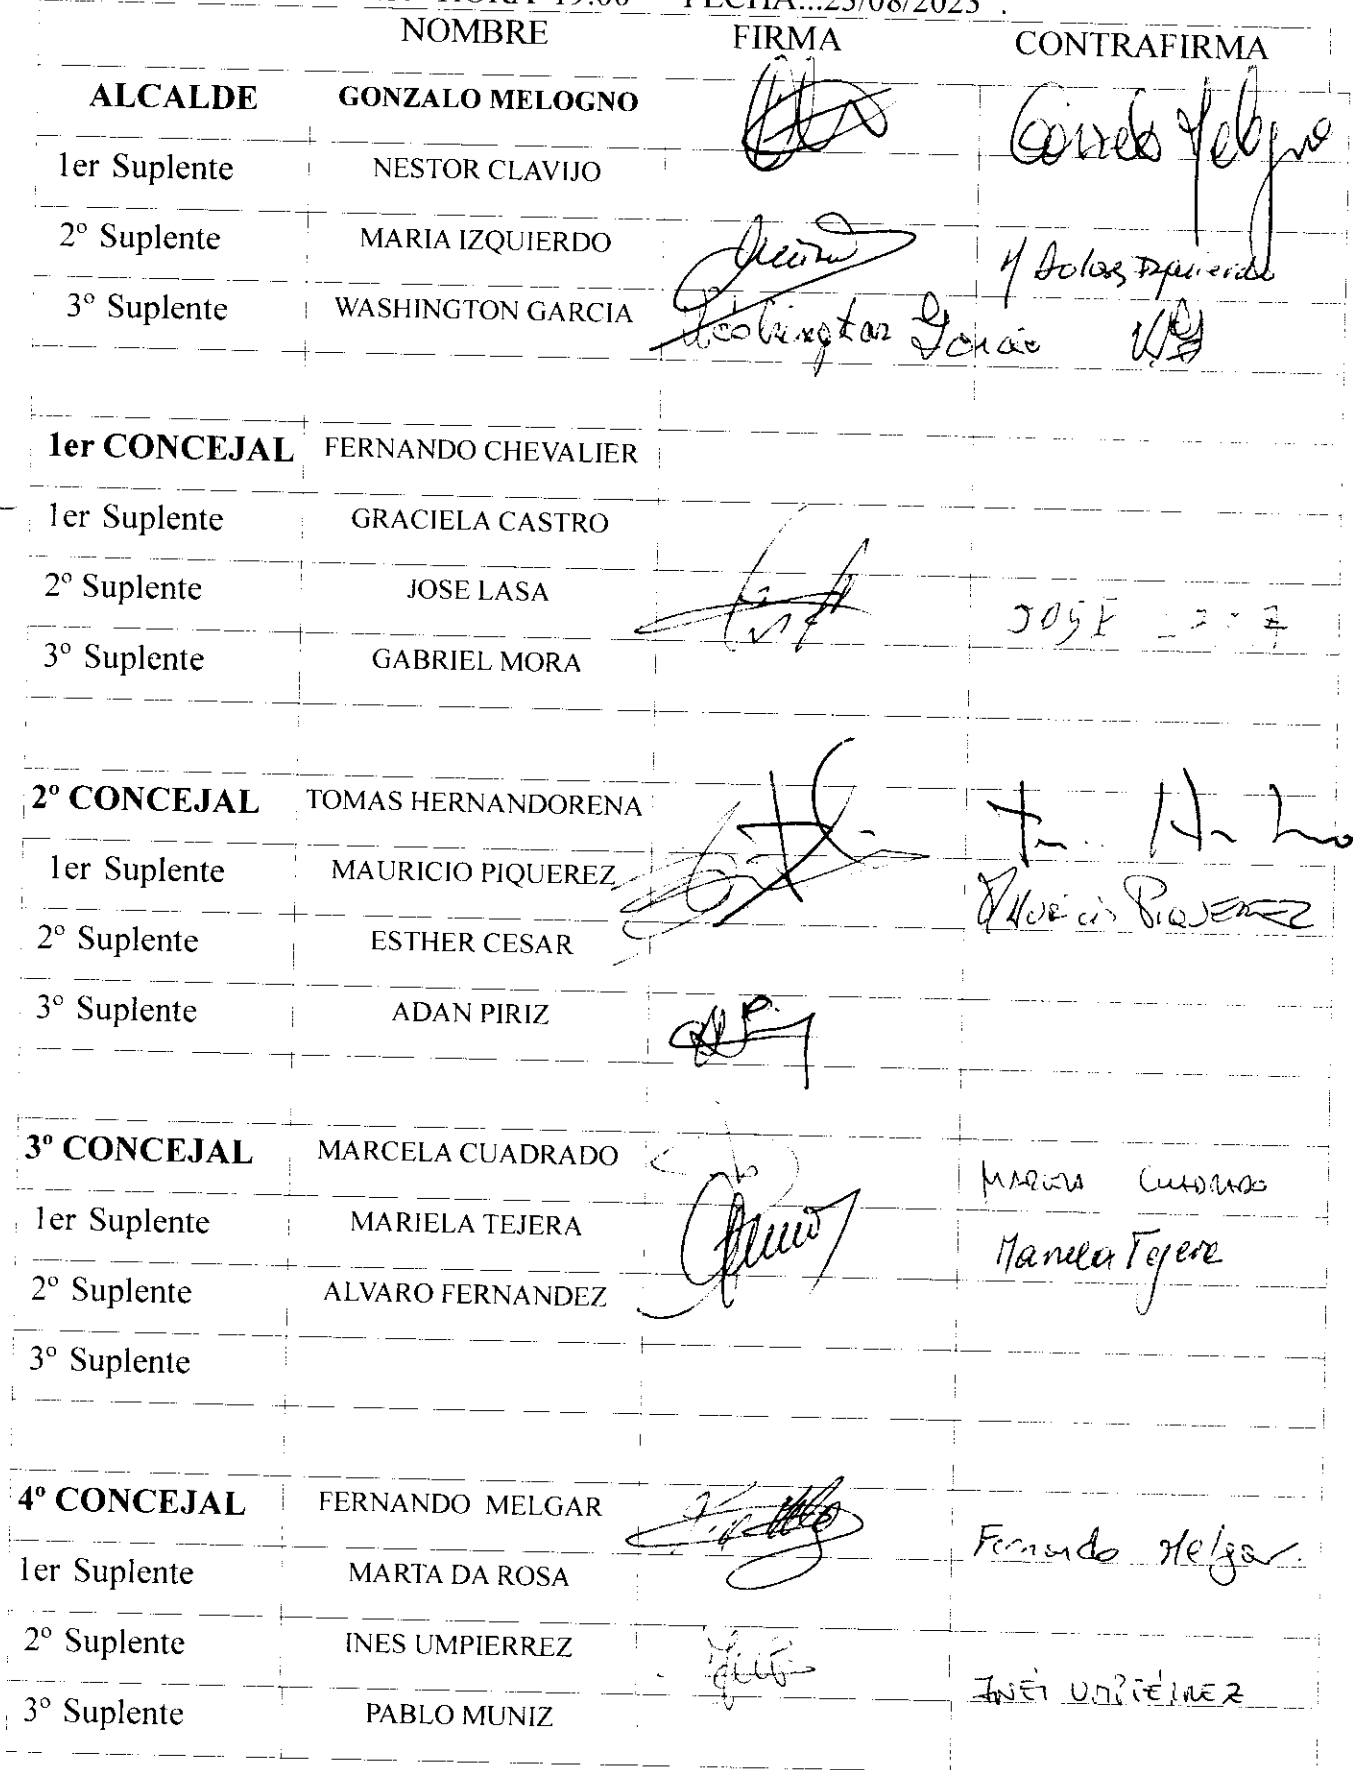 HORA 19:00 FECHA...23/08/2023 .
NOMBRE FIRMA CONTRAFIRMA
ALCALDE GONZALO MELOGNO
1er Suplente NESTOR CLAVIJO
2º Suplente MARIA IZQUIERDO
3º Suplente WASHINGTON GARCIA Washington Garcia
1er CONCEJAL FERNANDO CHEVALIER
1er Suplente GRACIELA CASTRO
2º Suplente JOSE LASA JOSE
3º Suplente GABRIEL MORA
2º CONCEJAL TOMAS HERNANDORENA
1er Suplente MAURICIO PIQUEREZ MAURICIO PIQUEREZ
2º Suplente ESTHER CESAR
3º Suplente ADAN PIRIZ
3º CONCEJAL MARCELA CUADRADO MARCELA CUADRADO
1er Suplente MARIELA TEJERA Mariela Tejera
2º Suplente ALVARO FERNANDEZ
3º Suplente
4º CONCEJAL FERNANDO MELGAR Fernando Melgar.
1er Suplente MARTA DA ROSA
2º Suplente INES UMPIERREZ INES UMPIERREZ
3º Suplente PABLO MUNIZ